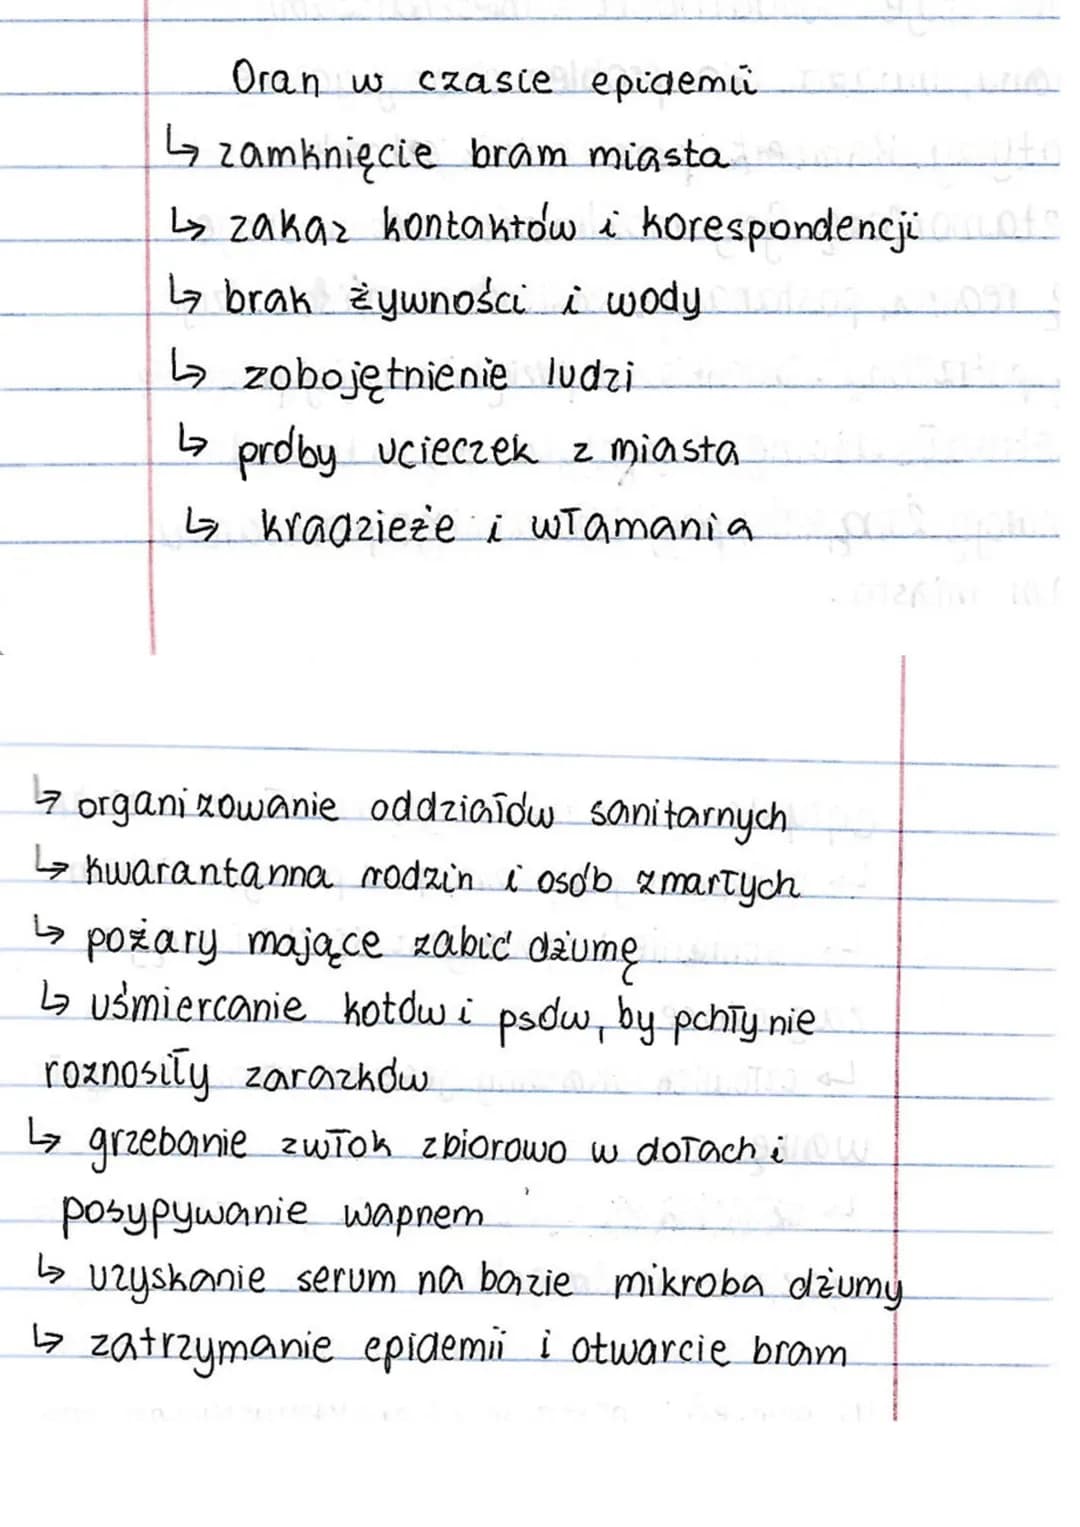 Oran w czasie epidemii
↳ zamknięcie bram miasta
↳ zakaz kontaktów i korespondencji
↳ brak żywności i wody
↳ zobojętnienie ludzi
↳ próby ucieczek z miasta
↳ kradzieże i włamania
↳ organizowanie oddziałów sanitarnych
↳ kwarantanna rodzin i osób zmarłych
↳ pożary mające zabić dżumę
↳ uśmiercanie kotów i psów, by pchły nie
roznosiły zarazków
↳ grzebanie zwłok zbiorowo w dołach i
posypywanie wapnem
↳ uzyskanie serum na bazie mikroba dżumy
↳ zatrzymanie epidemii i otwarcie bram